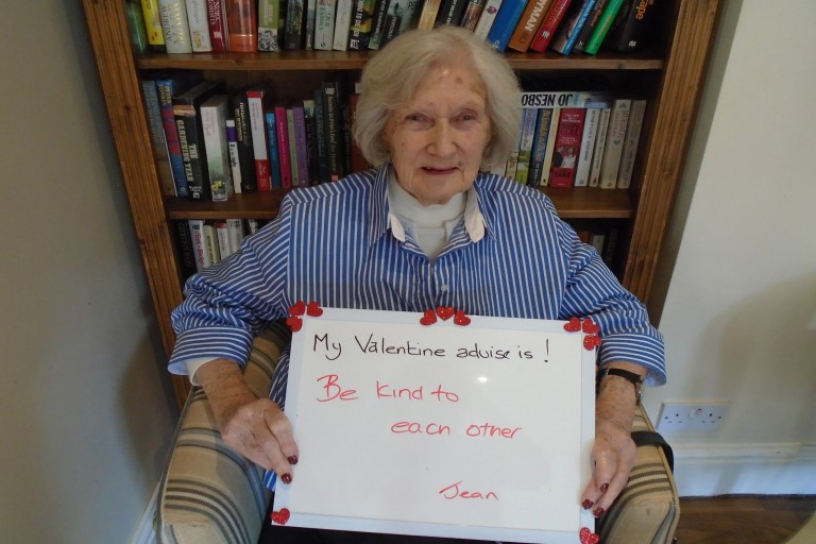 JO NESBO
My Valentine advise is !
Be kind to
each other
Jean